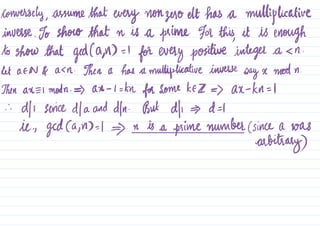 Conversely, assume that every nonzero elt has a multiplicative
inverse. To show that n is a prime For this, it is enough
to show that gcd(a,n)=1 for every positive integer a<n.
Let a∈N & a<n. Then a has a multiplicative inverse say x mod n.
Then ax≡1 mod n. ⇒ ax-1=kn for some k∈Z ⇒ ax-kn=1
∴ d|1 since d|a and d|n. But d|1 ⇒ d=1
ie., gcd(a,n)=1 ⇒ n is a prime number (since a was
arbitrary)